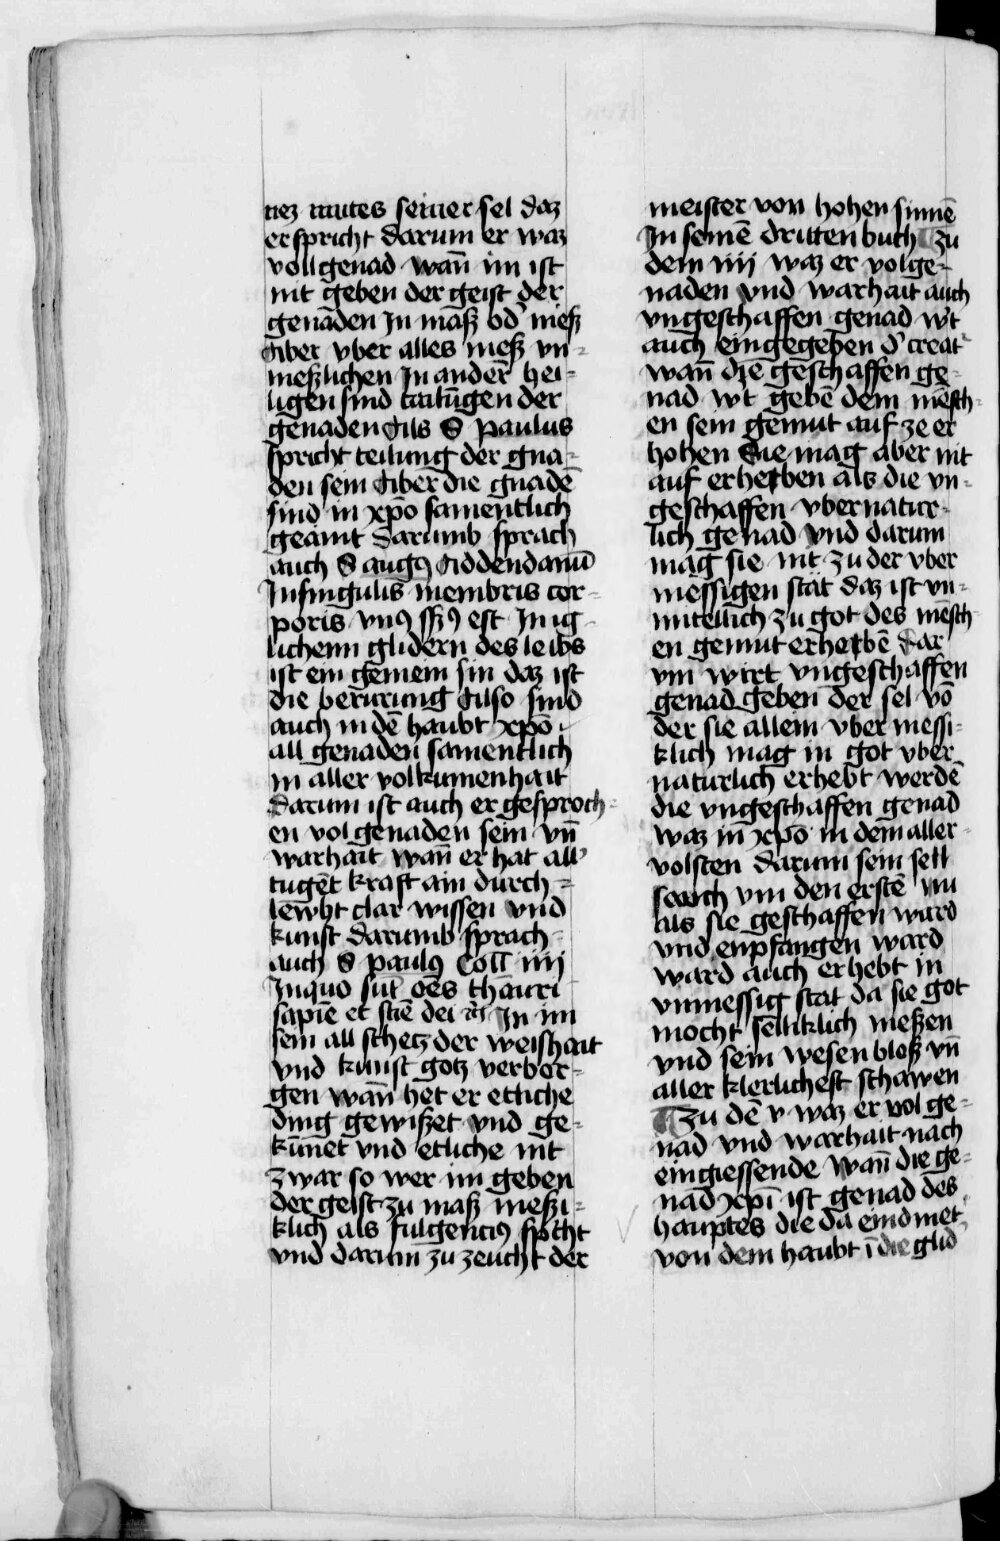 nez mutes seiner sel daz
er spricht darum er waz
voll genad wañ im ist
nit geben der geist der
genaden In maß od' meß
Aber vber alles meß vn-
meßlichen In andeñ hei-
ligen sind tailūgen der
genaden Als S Paulus
spricht teilung der gna-
den sein Aber die gnadē
sind in xp̄o samentlich
geaint Darumb sprach
auch S aug⁹
In singulis membris cor-
poris vn⁹ sēs⁹ est In ig-
lichenn glidern des leibs
ist ein gemein sin daz ist
die berürung Also sind
auch in dē haubt xp̄o
all genaden samentlich
in aller volkumenhait
Darum ist auch er gesproch-
en vol genaden sein vn̄
warhait wañ er hat all'
tugēt kraft ain durch-
lewht clar wissen vnd
kunst Darumb sprach
auch S paul⁹ Coll iiij
In quo sūt oēs thauri
sapiē et sciē dei In im
sein all schetz der weishait
vnd kunst gotz verbor-
gen wañ het er etliche
ding gewißet vnd ge-
kūnet vnd etliche nit
zwar so wer im geben
der geist zu maß meßi-
klich als fulgenci⁹ spricht
vnd darum zu zeucht der
meister von hohen sinnē
In seinē dritten buch Zu
dem iiij waz er volge-
naden vnd warhait auch
vngeschaffen genad wt
auch eingegeben d' creat'
wañ die geschaffen ge-
nad wt gebē dem mēsch-
en sein gemut auf ze er
hohen Sie mag aber nit
auf erheben als die vn-
geschaffen vbernatur-
lich genad vnd darum
mag sie nit zu der vber
messigen stat daz ist vn-
mitellich zu got des mēsch-
en gemut erhebē Dar
vm wirt vngeschaffen
genad geben der sel vō
der sie allein vber messi-
klich mag in got vber
naturlich erhebt werdē
die vngeschaffen genad
waz in xp̄o in dem aller-
volsten Darum sein sell
vm den erstē nu
als sie geschaffen ward
vnd enpfangen ward
ward auch erhebt in
vnmessig stat da sie got
mocht selliklich nießen
vnd sein wesen bloß vn̄
aller klerlichest schawen
Zu dē v waz er vol ge-
nad vnd warhait nach
eingiessende wañ die ge-
nad xp̄i ist genad des
hauptes die da
von dem haubt ī die glid